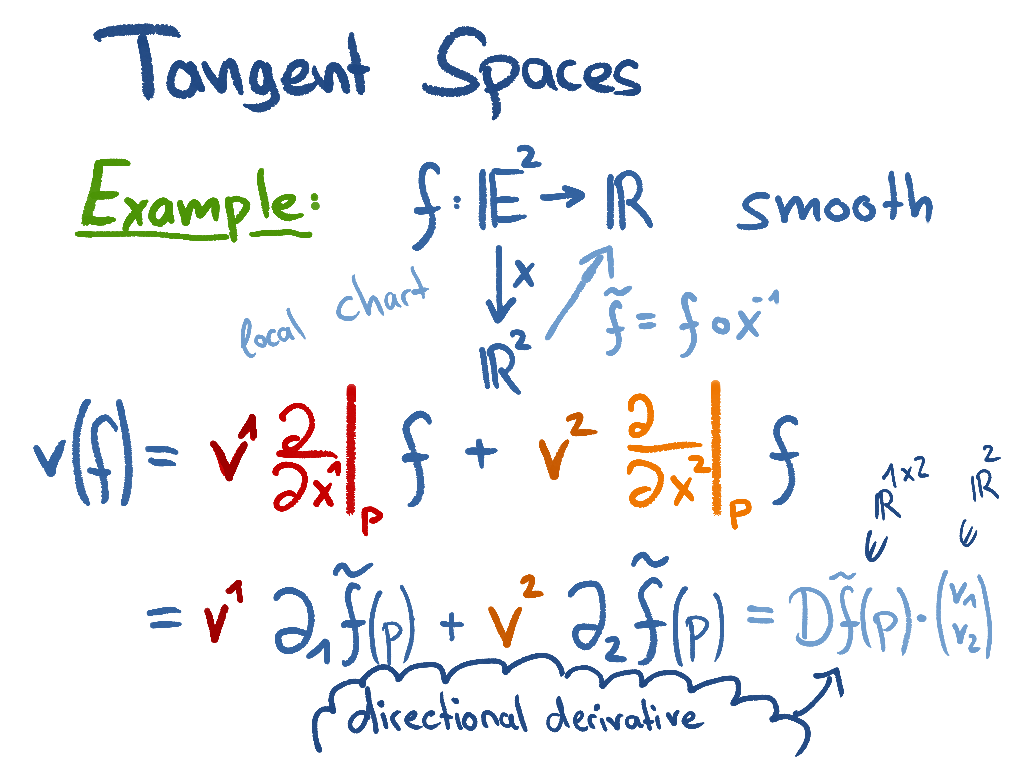 Tangent Spaces
Example: f: 𝔼² → ℝ smooth
x
local chart
f̃ = f ∘ x⁻¹
ℝ²
v(f) = v¹ ∂/∂x¹|ₚ f + v² ∂/∂x²|ₚ f
ℝ¹ˣ² ℝ²
= v¹ ∂₁f̃(p) + v² ∂₂f̃(p) = Df̃(p)·(v₁ v₂)
directional derivative